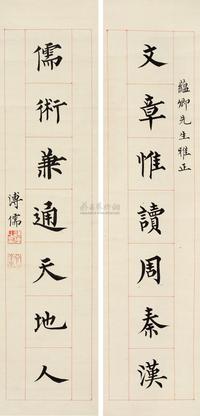 蘊卿先生雅正
文章惟讀周秦漢
儒術兼通天地人
溥儒